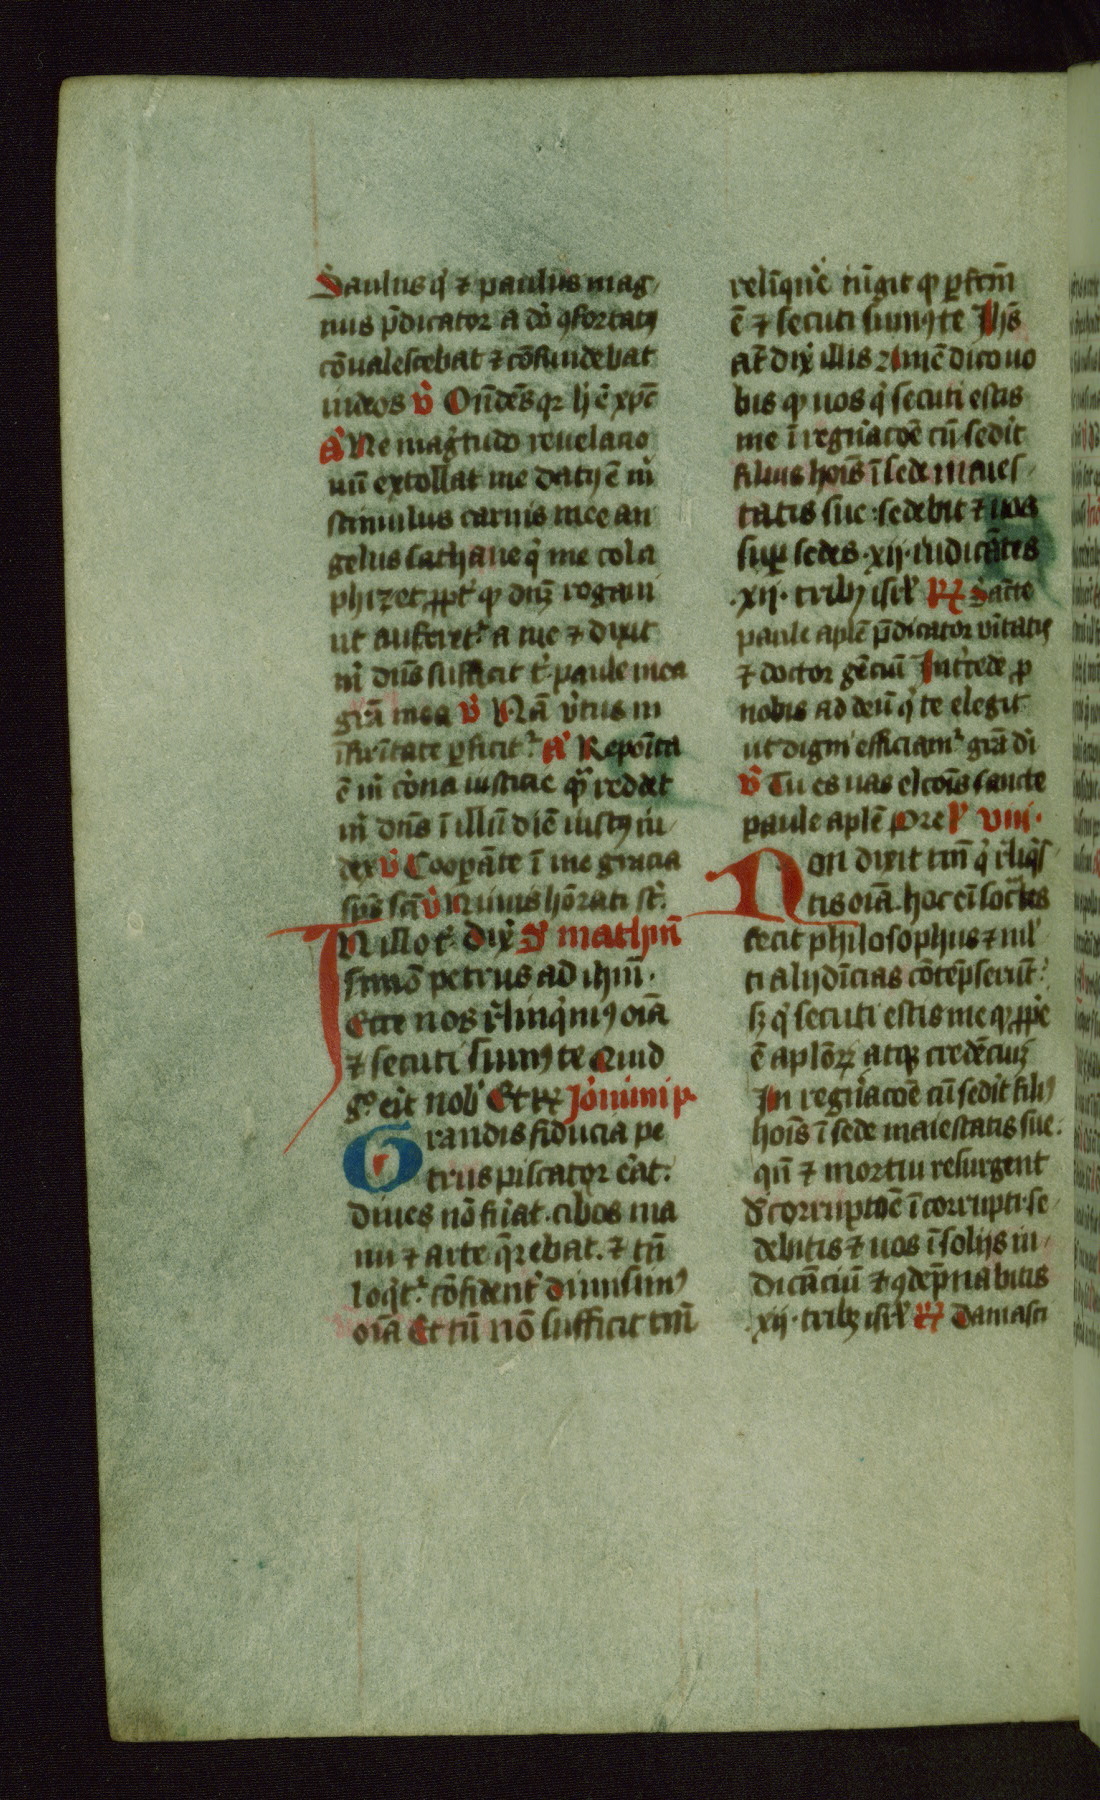 Saulus q̇ ⁊ paulus mag
nus p̄dicator a dō ꝯfortatꝰ
cōualescebat ⁊ cōfundebat
iudeos v̇ Oñdēs qꝛ h̄ ē xp̄c
A᷒ Ne mag̓tudo reuelacio
nū extollat me datꝰ ē m̓
stimulus carnis mee an
gelus sathane q̓ me cola
phizet ꝓpt̓ qꝫ dn̄ꝫ rogaui
ut auferet᷒ a me ⁊ dixit
m̓ dn̄s sufficit t̓ paule mea
grā mea v̇ Nā v̓tus in
īfir̄itate ꝑficit᷒ A᷒ Reposita
ē m̓ corōa iusticie quā reddet
m̓ dn̄s ī illū diē iustꝰ iu
dex v̇ Cooperāte ī me gracia
sp̄s sc̄i v̇ Nimis hōrati st̓
IN illo t̓ dix̓ S᷒ mathm̄
simō petrus ad ihm̄.
Ecce nos r̓linqimꝰ oīa
⁊ secuti sumꝰ te Quid
g̊ eit nob̓ Et rꝫ Jōnimi p.
Grandis fiducia pe
trus piscator e̓at.
diues nō fuat. cibos ma
nu ⁊ arte q̄rebat. ⁊ tn̄
loqt̓ᷣ cōfident̓ dimisimꝰ
oīa Et tn̄ nō sufficit tm̄
reliq̄re iūgit qꝫ ꝑfcm̄
ē ⁊ secuti sumꝰ te Ihs̄
at̄ dix̓ illis Amē dico uo
bis qꝫ uos q̓ secuti estis
me ī regn̓acōe cū sedit
filius hoīs ī sede maies
tatis sue: sedebit ⁊ uos
suꝑ sedes .xij. iudicātes
.xij. tribꝫ isrl̓ Rꝫ Sancte
paule apl̄e p̄dicator ūitatis
⁊ doctor gēciū Int̓cede ꝓ
nobis ad deū q̓ te elegit
ut digni efficiam᷒ grā di
v̇ Tu es uas elcōis sancte
paule apl̄e Ore p̓ viii.
Non dixit tm̄ q̓ rliqs
tis oīa. hoc eī socrates
fecit philosophus ⁊ ml̓
ti alij diuicias cōtēpserūt:
sꝫ q̓ secuti estis me qꝫ ꝓpe
ē apl̄oꝝ atqꝫ credēciuꝫ
In regn̓acōe cū sedit filiꝰ
hoīs ī sede maiestatis sue.
qn̄ ⁊ mortui resurgent
d̓ corrupcōe īcorrupti. se
debitis ⁊ uos ī solijs iu
dicāciū ⁊ ꝯdēpnabitis
.xij. tribꝫ isrl̓ Rꝫ Damasci